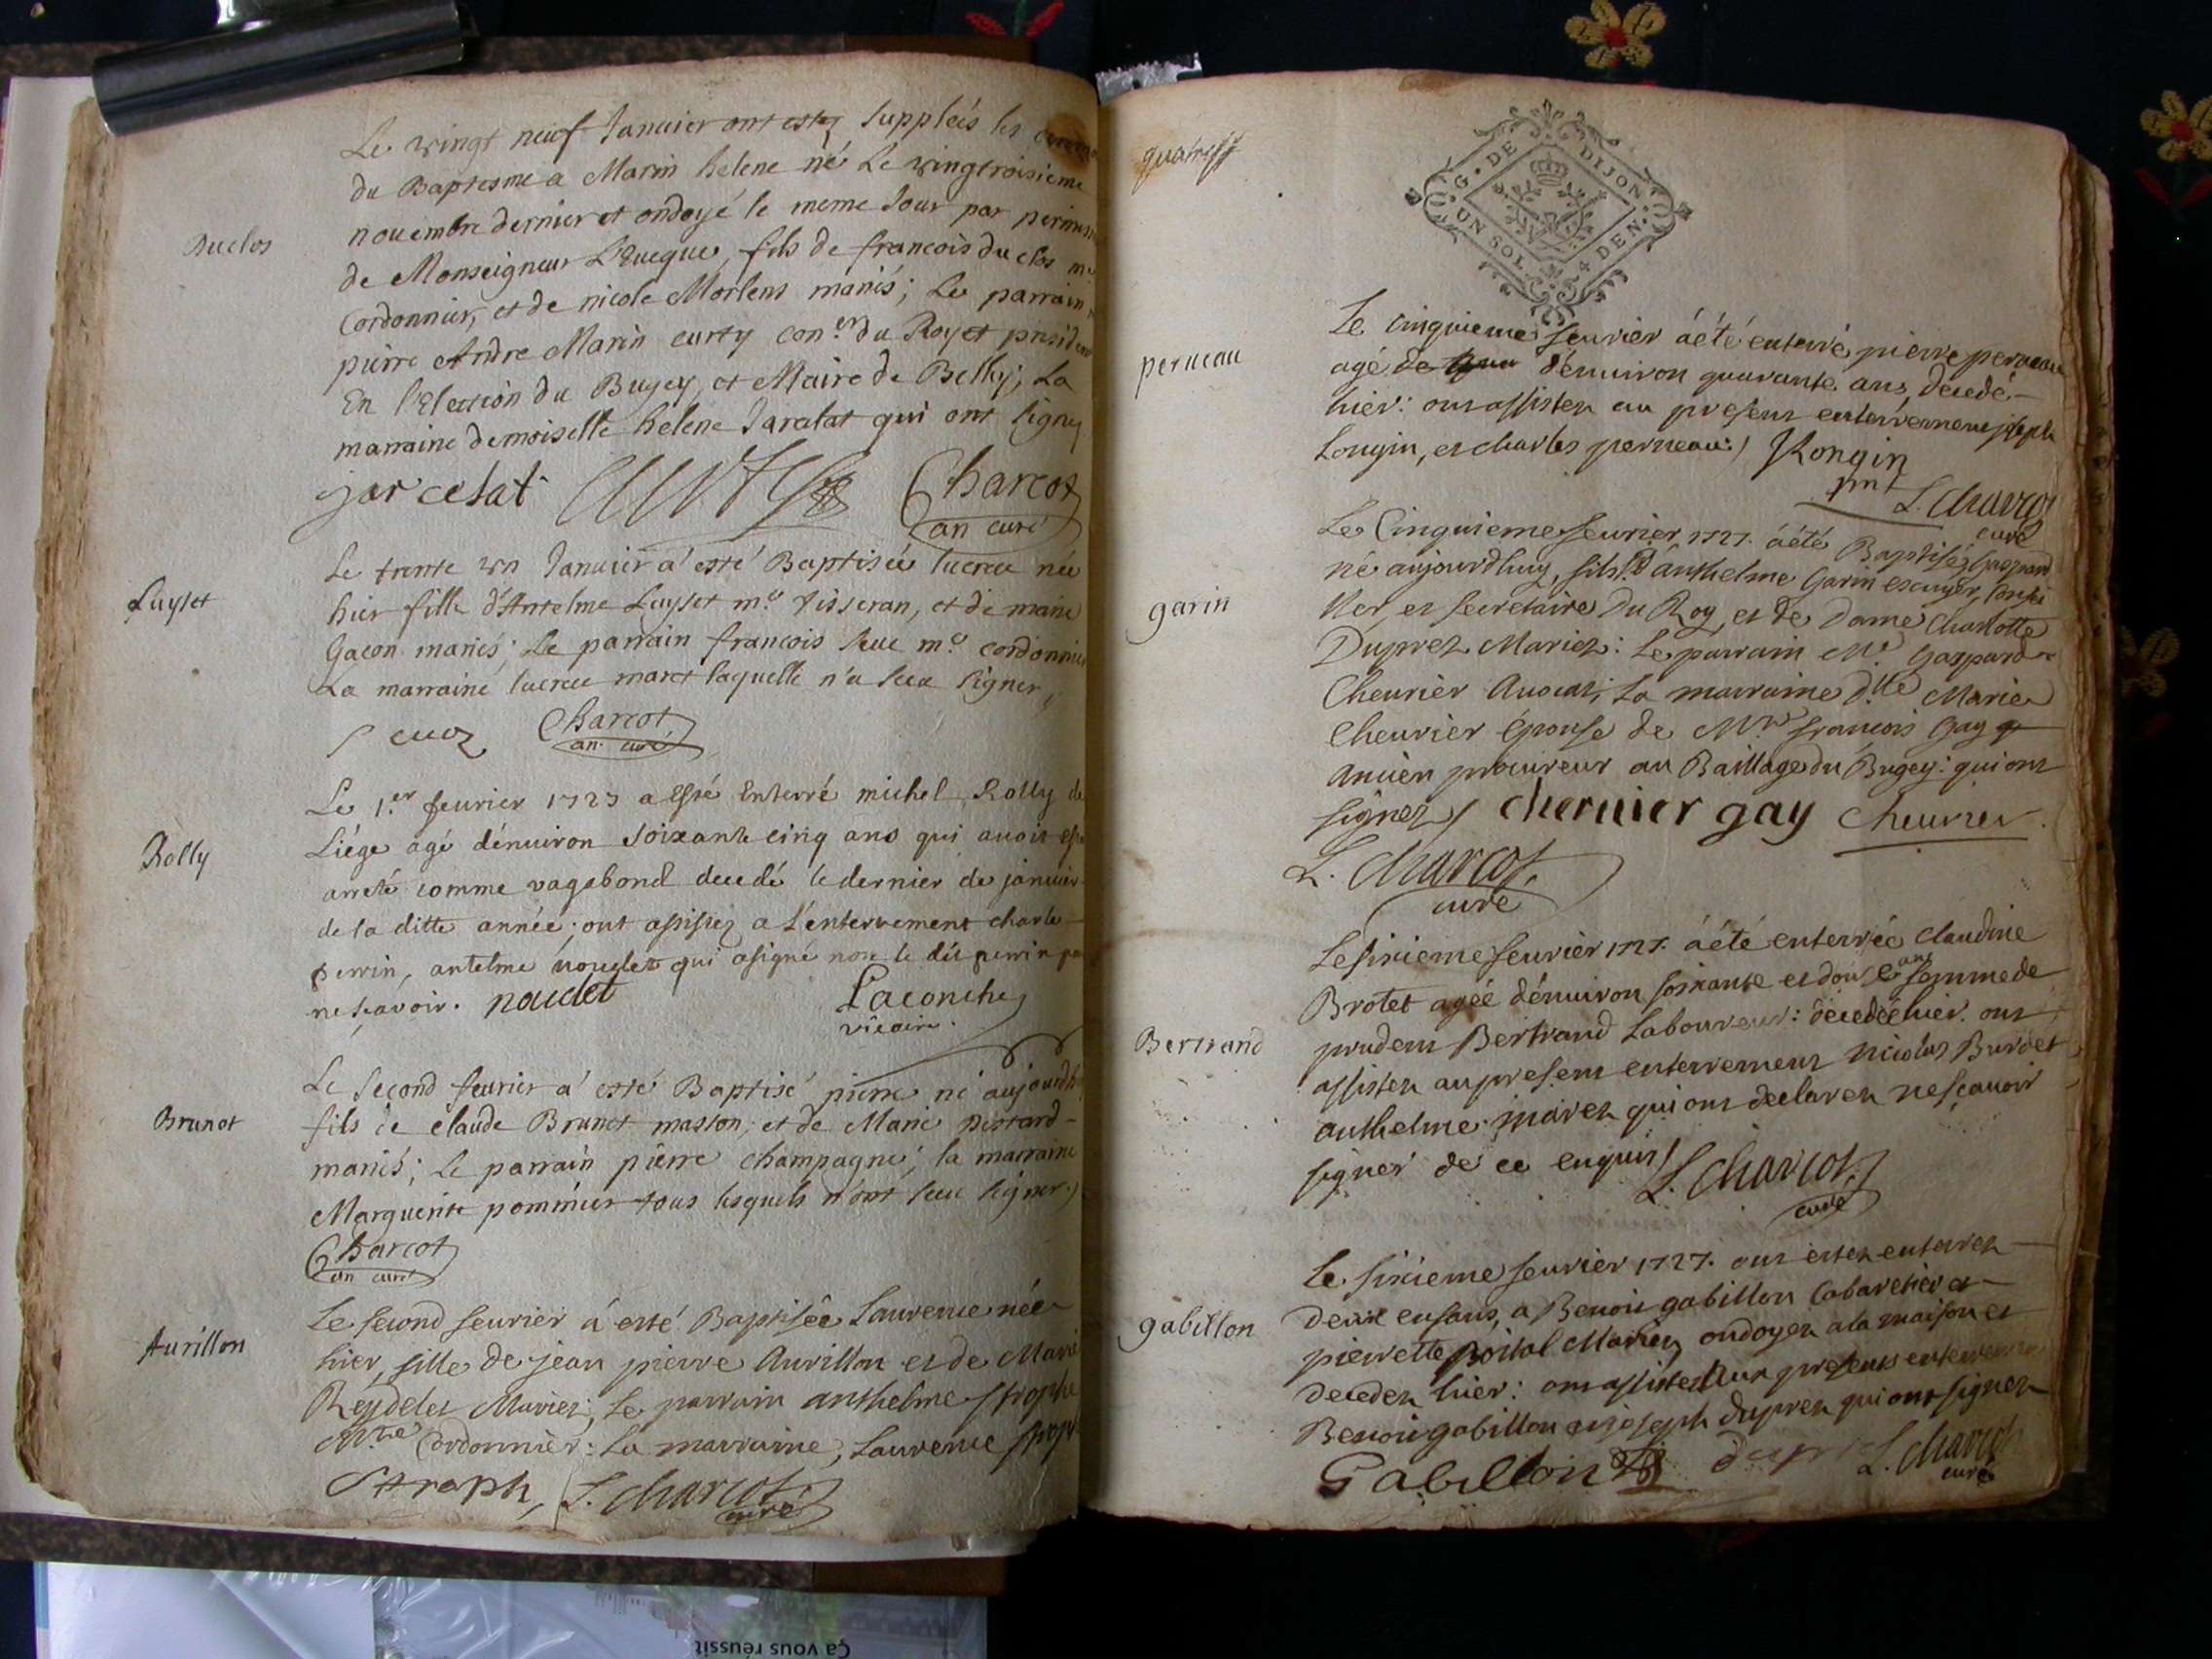 Duclos
Le vingt neuf Januier ont estez suppleés les
du Baptesme a Marin helene né Le vingtroisieme
nouembre dernier et ondoyé le meme Jour par
de Monseigneur L'Eueque, fils de francois du clos
Cordonnier, et de nicole Morlens mariés; Le parrain
pierre Andre Marin curty con.er du Roy et
En l'Election du Bugey, et Maire de Belley; La
marraine demoiselle helene Jarcelat qui ont signez
jarcelat Charcot
an curé
Luyset
Le trente un Januier a esté Baptisée lucrece née
hier fille d'Antelme Luyset m.e tisseran, et de marie
Gacon mariés; Le parrain francois seuc m.e
La marraine lucrece maret laquelle n'a sceu signer,
Charcot
an curé
Rolly
Le 1.er feurier 1727 a esté Enterré michel Rolly de
Liége agé dénuiron soixante cinq ans qui auoit
arreté comme vagabond decedé le dernier de januier
de la ditte année; ont assistez a l'enterrement charle
perrin, antelme qui a signé non le dit perrin
ne sçavoir. naudet Laconche
vicaire.
Brunot
Le second feurier a esté Baptisé pierre né
fils de claude Brunot masson, et de Marie
mariés; Le parrain pierre champagne, la marraine
Marguerite pommier tous lesquels n'ont sceu signer.
Charcot
an curé
Aurillon
Le second feurier a esté Baptisée Laurence née
hier, fille de jean pierre Aurillon et de Marie
Reydelet Mariez; Le parrain anthelme
Cordonnier: La marraine, Laurence
Straph, L. Charcot
curé
G. DE DIJON
UN SOL 4 DEN.
perneau
Le cinquieme feurier a été enterré pierre perneau
agé dénuiron quarante ans, decedé
hier: ont assistez au present enterrement joseph
Longin, et charles perneau. Longin
L. Charcot
curé
garin
Le Cinquieme feurier 1727. a été Baptisé, Gaspard
né aujourdhuy, fils d'anthelme Garin escuyer,
ller, et secretaire Du Roy, et de Dame Charlotte
Duprez Mariez: Le parrain M.e Gaspard
Cheurier Auocat; La marraine d.lle Marie
Cheurier épouse de francois Gay
Ancien procureur au Baillage du Bugey: qui ont
signez cheruier gay cheurier.
L. Charcot.
curé
Bertrand
Le sixieme feurier 1727. a été enterrée claudine
Brotet agée dénuiron soixante et douze ans femme de
prudent Bertrand Laboureur: decedée hier. ont
assistez au present enterrement nicolas Burdet
anthelme qui ont declarez ne sçauoir
signer de ce enquis L. Charcot.
curé
gabillon
Le sixieme feurier 1727. ont estez enterrez
deux enfans, a Benoit gabillon Cabaretier et
pierrette Mariez, ondoyez a la maison et
decedez hier: ont assistez aux presents
Benoit gabillon et joseph duprez qui ont signez
Gabillon L. Charcot
curé
Ça vous réussit